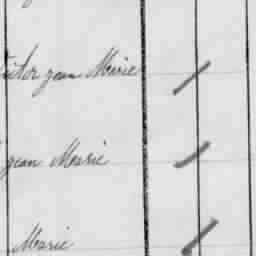 Victor jean Marie
jean Marie
Marie